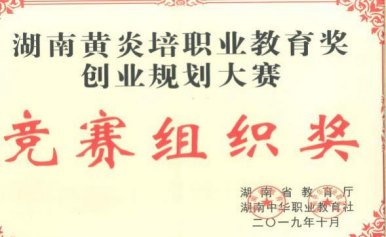 湖南黄炎培职业教育奖
创业规划大赛
竞赛组织奖
湖南省教育厅
湖南中华职业教育社
二〇一九年十月